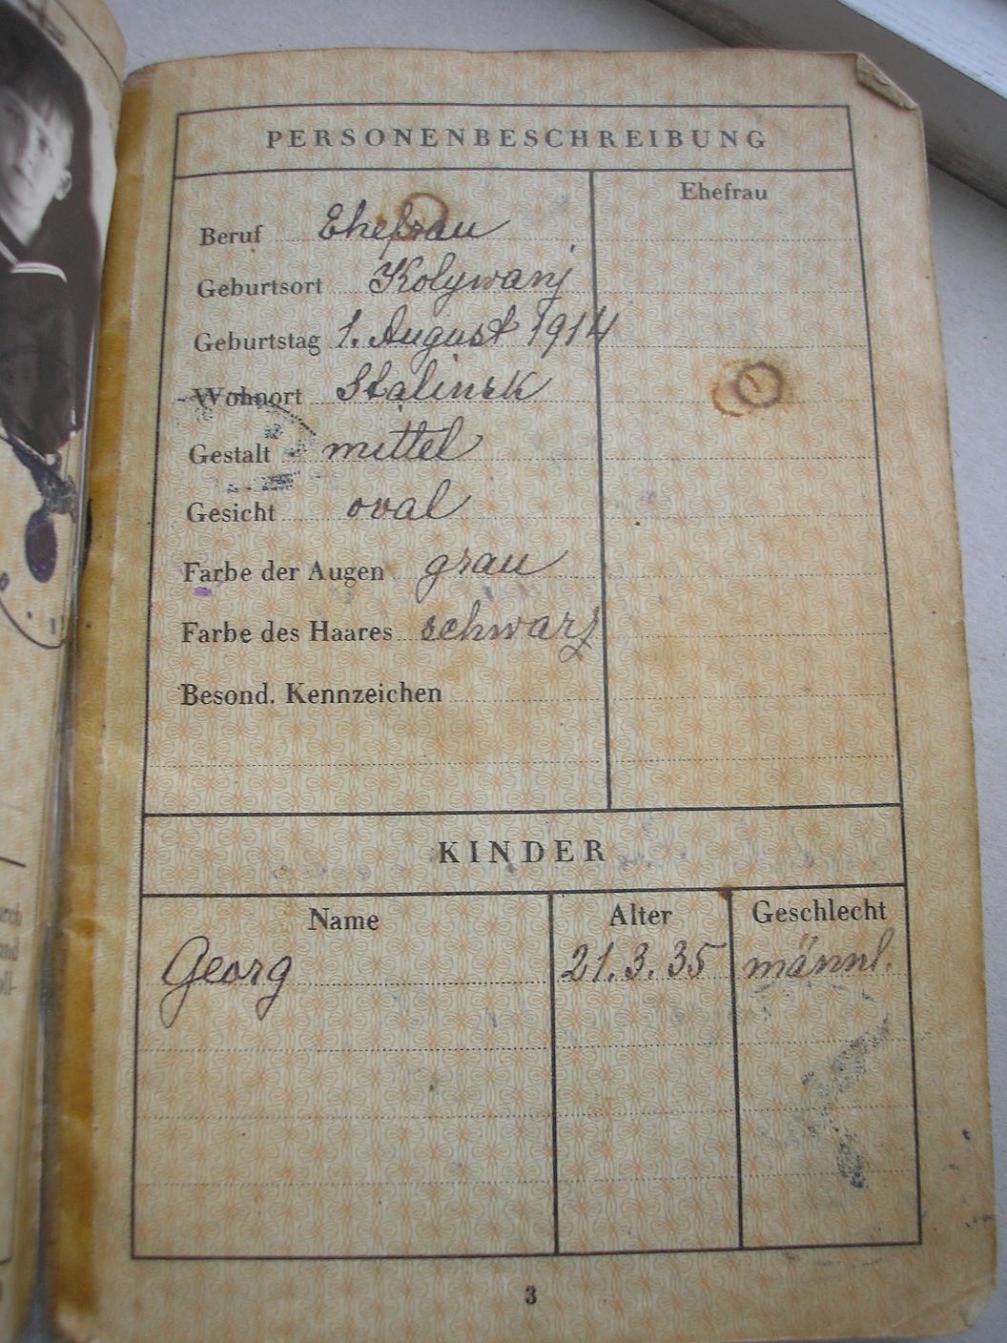 PERSONENBESCHREIBUNG
Ehefrau
Beruf Ehefrau
Geburtsort Kolywanj
Geburtstag 1. August 1914
Wohnort Stalinsk
Gestalt mittel
Gesicht oval
Farbe der Augen grau
Farbe des Haares schwarz
Besond. Kennzeichen
KINDER
Name Alter Geschlecht
Georg 21.3.35 männl.
3